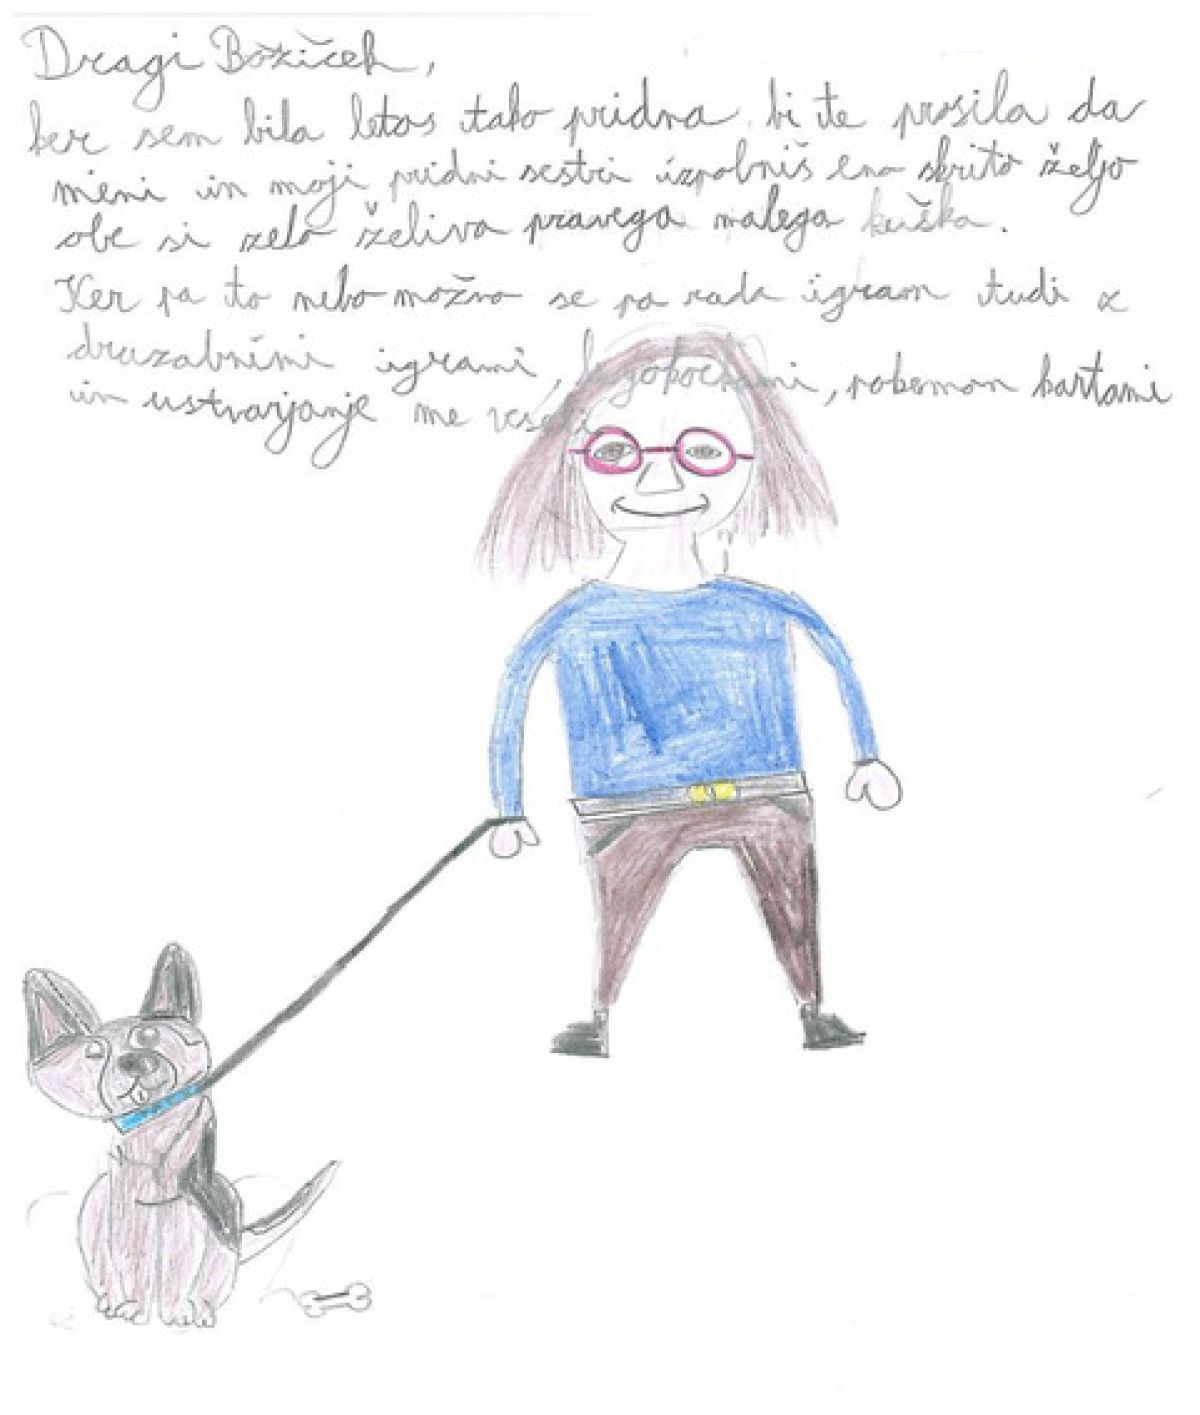 Dragi Božiček,
ker sem bila letos tako pridna bi te prosila da
meni in moji pridni sestri izpolniš eno skrito željo
obe si zelo želiva pravega malega kužka.
Ker pa to nebo možno se pa rada igram tudi z
druzabnimi igrami, legokockami, pokemon kartami
in ustvarjanje me veseli